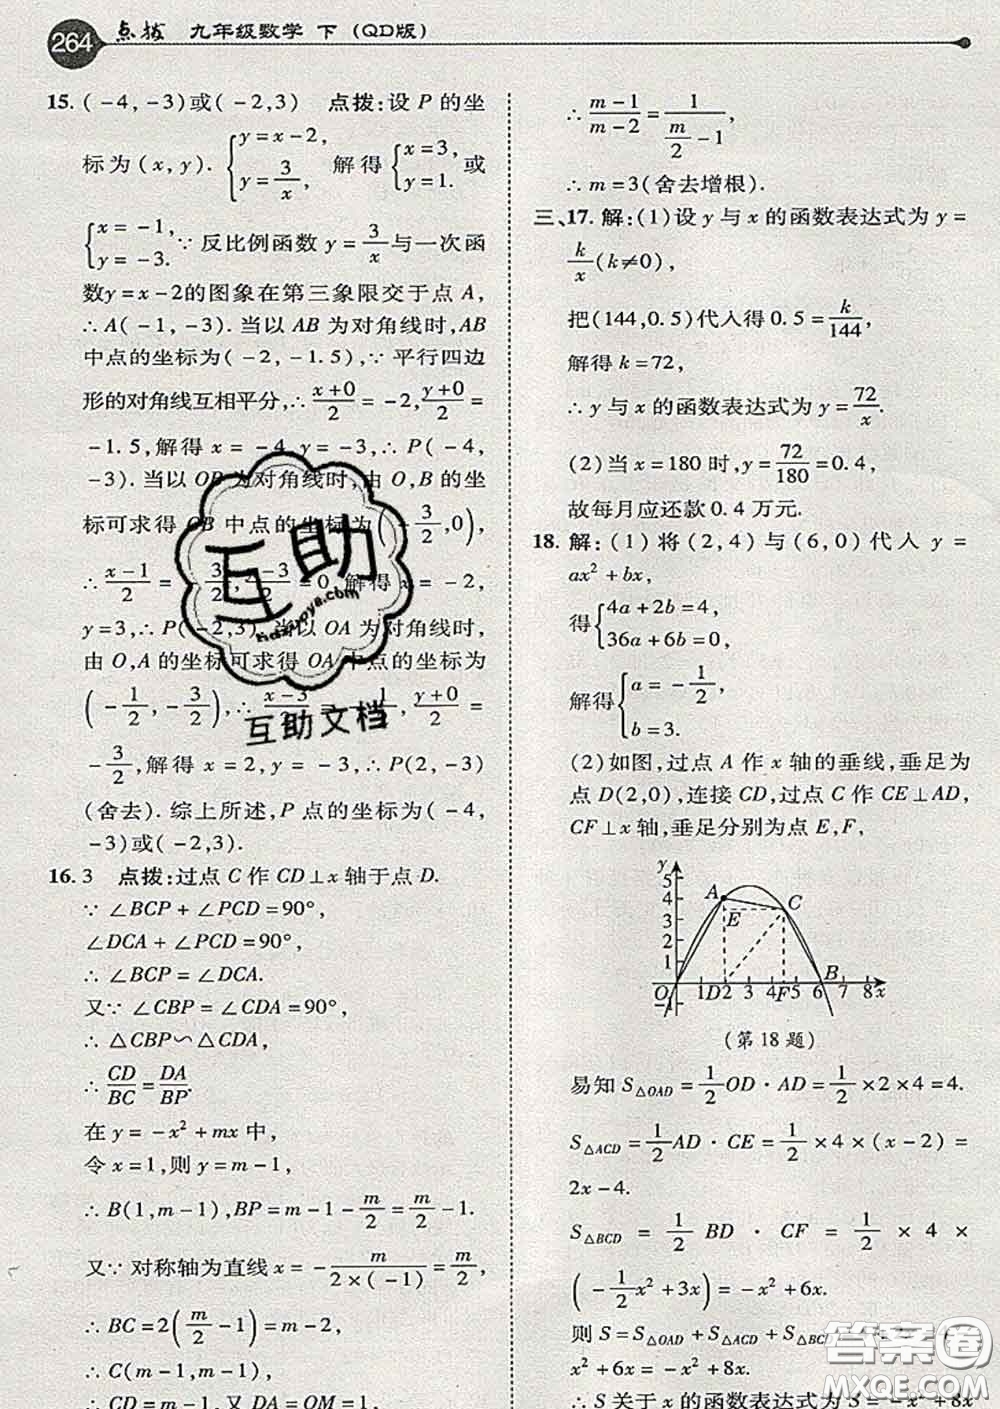 264 点拨 九年级数学 下 (QD版)
15. (-4,-3)或(-2,3) 点拨:设 P 的坐
标为(x,y). {y=x-2, y=3/x, 解得{x=3, y=1. 或
{x=-1, y=-3. ∵反比例函数 y=3/x与一次函
数y=x-2的图象在第三象限交于点 A,
∴A(-1,-3).当以 AB 为对角线时,AB
中点的坐标为(-2,-1.5),∵平行四边
形的对角线互相平分,∴(x+0)/2=-2,(y+0)/2=
-1.5,解得 x=-4,y=-3,∴P(-4,
-3).当以 OB 为对角线时,由 O,B 的坐
标可求得 OB 中点的坐标为(-3/2,0),
∴(x-1)/2=-3/2,(y-3)/2=0,解得 x=-2,
y=3,∴P(-2,3).当以 OA 为对角线时,
由 O,A 的坐标可求得 OA 中点的坐标为
(-1/2,-3/2),∴(x-3)/2=-1/2,(y+0)/2=
-3/2,解得 x=2,y=-3,∴P(2,-3)
(舍去).综上所述,P 点的坐标为(-4,
-3)或(-2,3).
16. 3 点拨:过点 C 作 CD⊥x 轴于点 D.
∵∠BCP+∠PCD=90°,
∠DCA+∠PCD=90°,
∴∠BCP=∠DCA.
又∵∠CBP=∠CDA=90°,
∴△CBP∽△CDA,
∴CD/BC=DA/BP.
在 y=-x²+mx 中,
令 x=1,则 y=m-1,
∴B(1,m-1),BP=m-1-m/2=m/2-1.
又∵对称轴为直线 x=-m/(2×(-1))=m/2,
∴BC=2(m/2-1)=m-2,
∴C(m-1,m-1),
∴CD=m-1,又 DA=OM=1,
∴(m-1)/(m-2)=1/(m/2-1),
∴m=3(舍去增根).
三、17. 解:(1)设 y 与 x 的函数表达式为 y=
k/x(k≠0),
把(144,0.5)代入得 0.5=k/144,
解得 k=72,
∴y 与 x 的函数表达式为 y=72/x.
(2)当 x=180 时,y=72/180=0.4,
故每月应还款 0.4 万元.
18. 解:(1)将(2,4)与(6,0)代入 y=
ax²+bx,
得{4a+2b=4, 36a+6b=0,
解得{a=-1/2, b=3.
(2)如图,过点 A 作 x 轴的垂线,垂足为
点 D(2,0),连接 CD,过点 C 作 CE⊥AD,
CF⊥x 轴,垂足分别为点 E,F,
y
5
4 A
3 E C
2
1
O 1 D2 3 4 F5 6 B 7 8 x
-1
(第 18 题)
易知 S△OAD=1/2 OD·AD=1/2×2×4=4.
S△ACD=1/2 AD·CE=1/2×4×(x-2)=
2x-4.
S△BCD=1/2 BD·CF=1/2×4×
(-1/2x²+3x)=-x²+6x.
则 S=S△OAD+S△ACD+S△BCD
x²+6x=-x²+8x.
∴S 关于 x 的函数表达式为 S=-x²+8x
互助
huzuoye.com
互助文档
答案圈
MXQE.COM